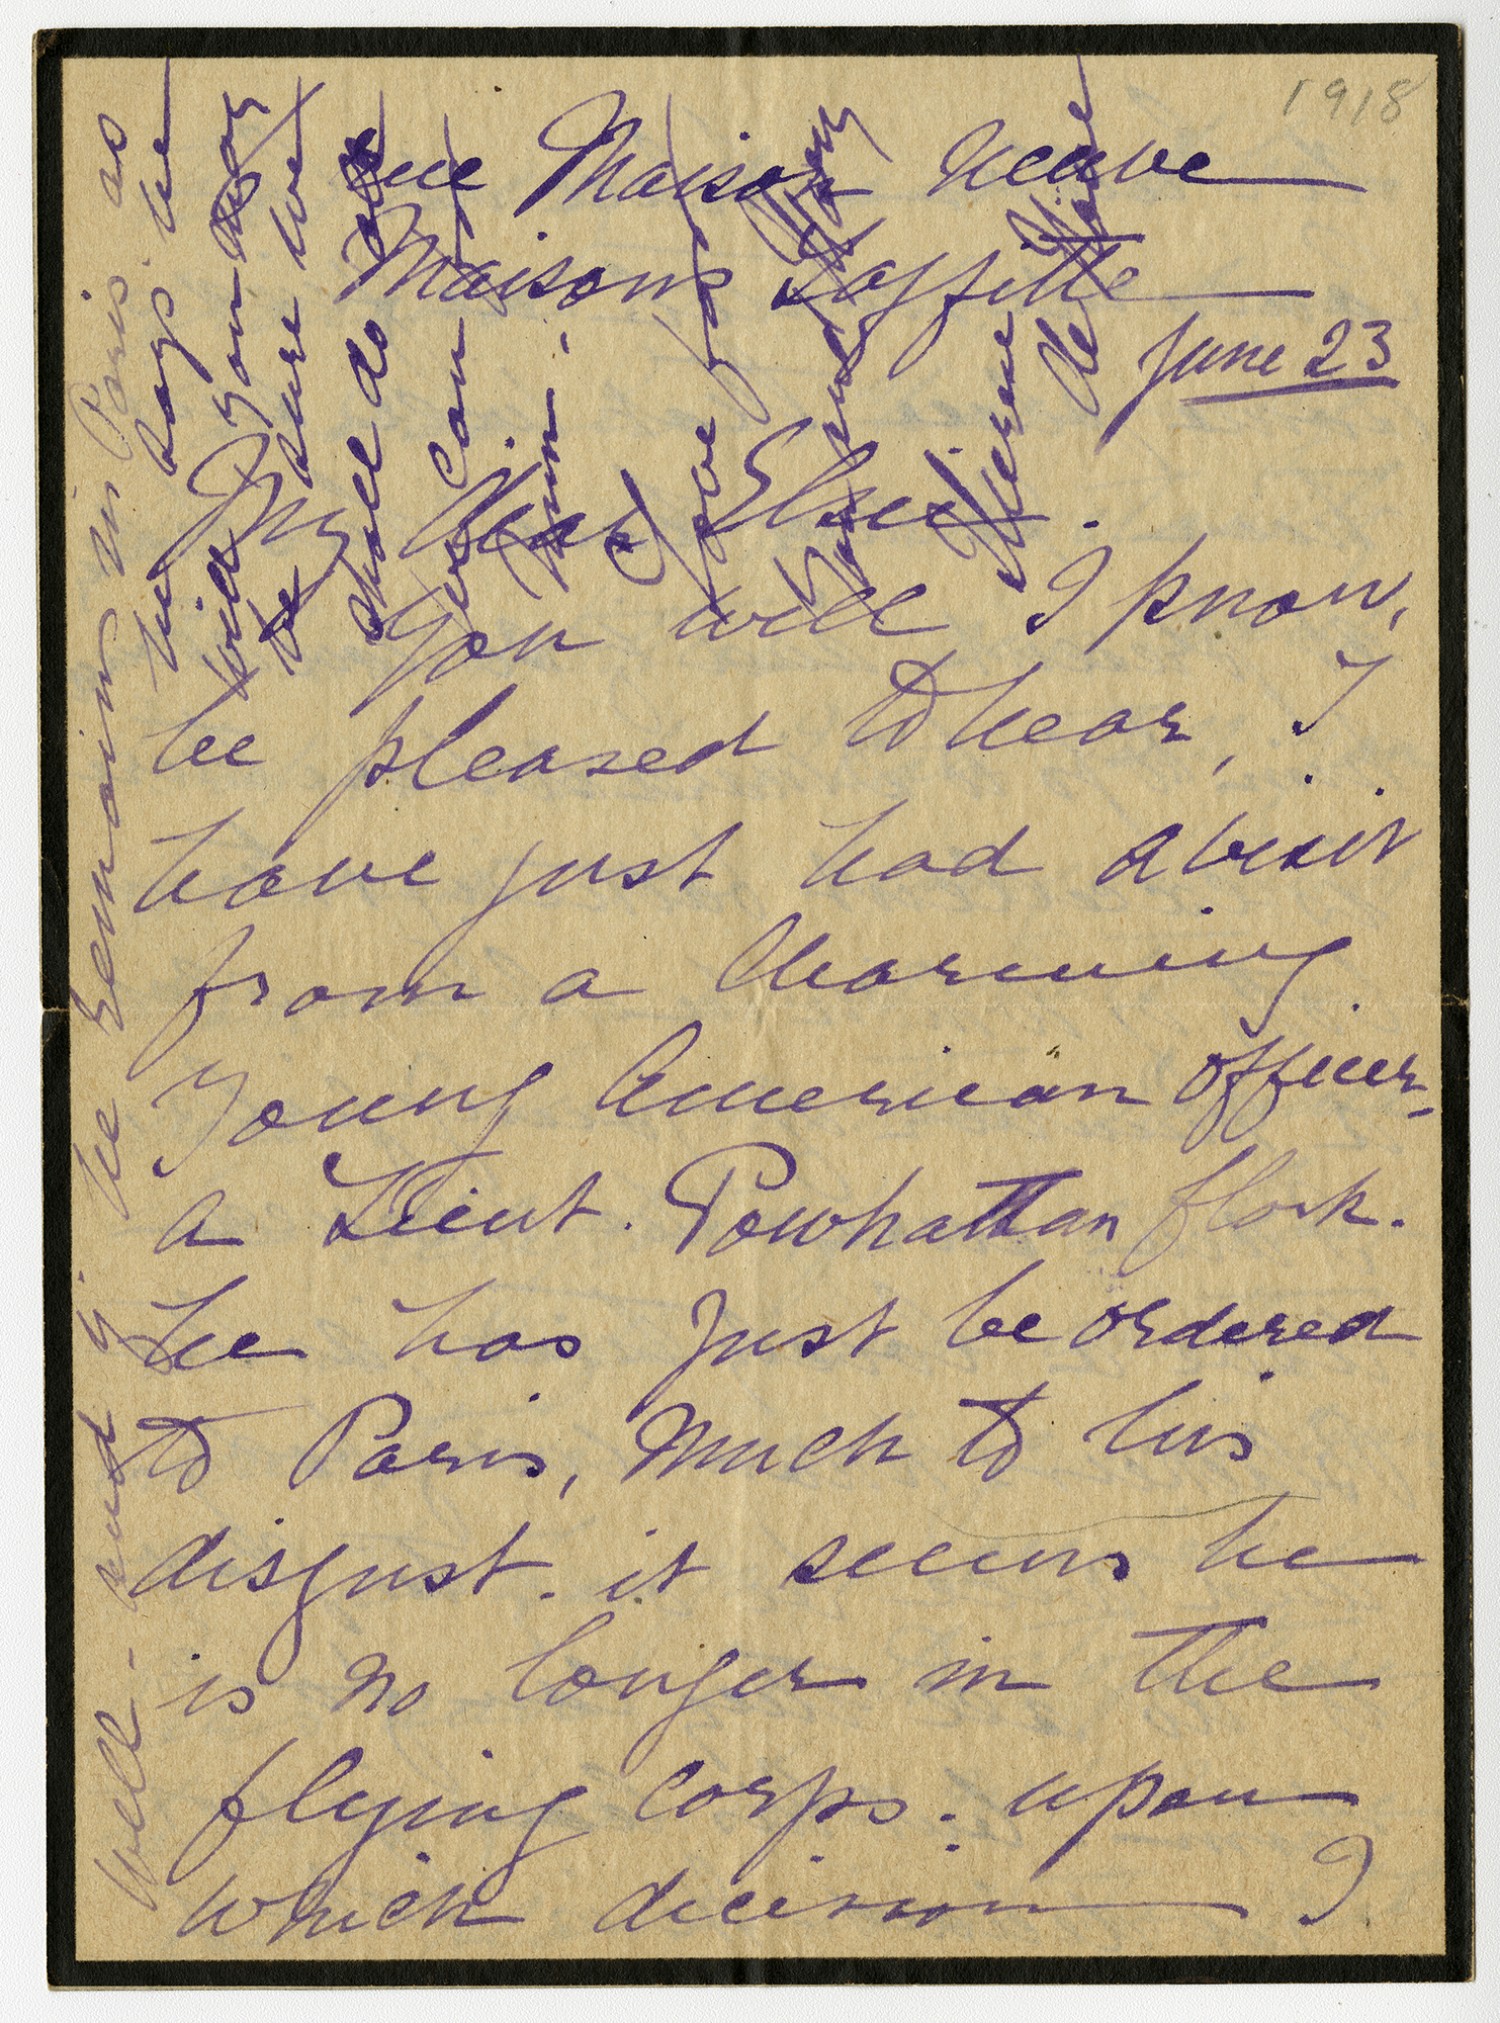 1918
rue Maison Neuve
Maisons Laffitte
June 23
My dear Elsie.
You will I know,
be pleased to hear, I
have just had a visit
from a charming
young American officer,
a Lieut. Powhattan
He has just be ordered
to Paris, much to his
disgust. it seems he
is no longer in the
flying corps. upon
which decision I
well - and if he remains in Paris as
he says he
will you may
be sure we
shall do all
we can for
him.
Love to